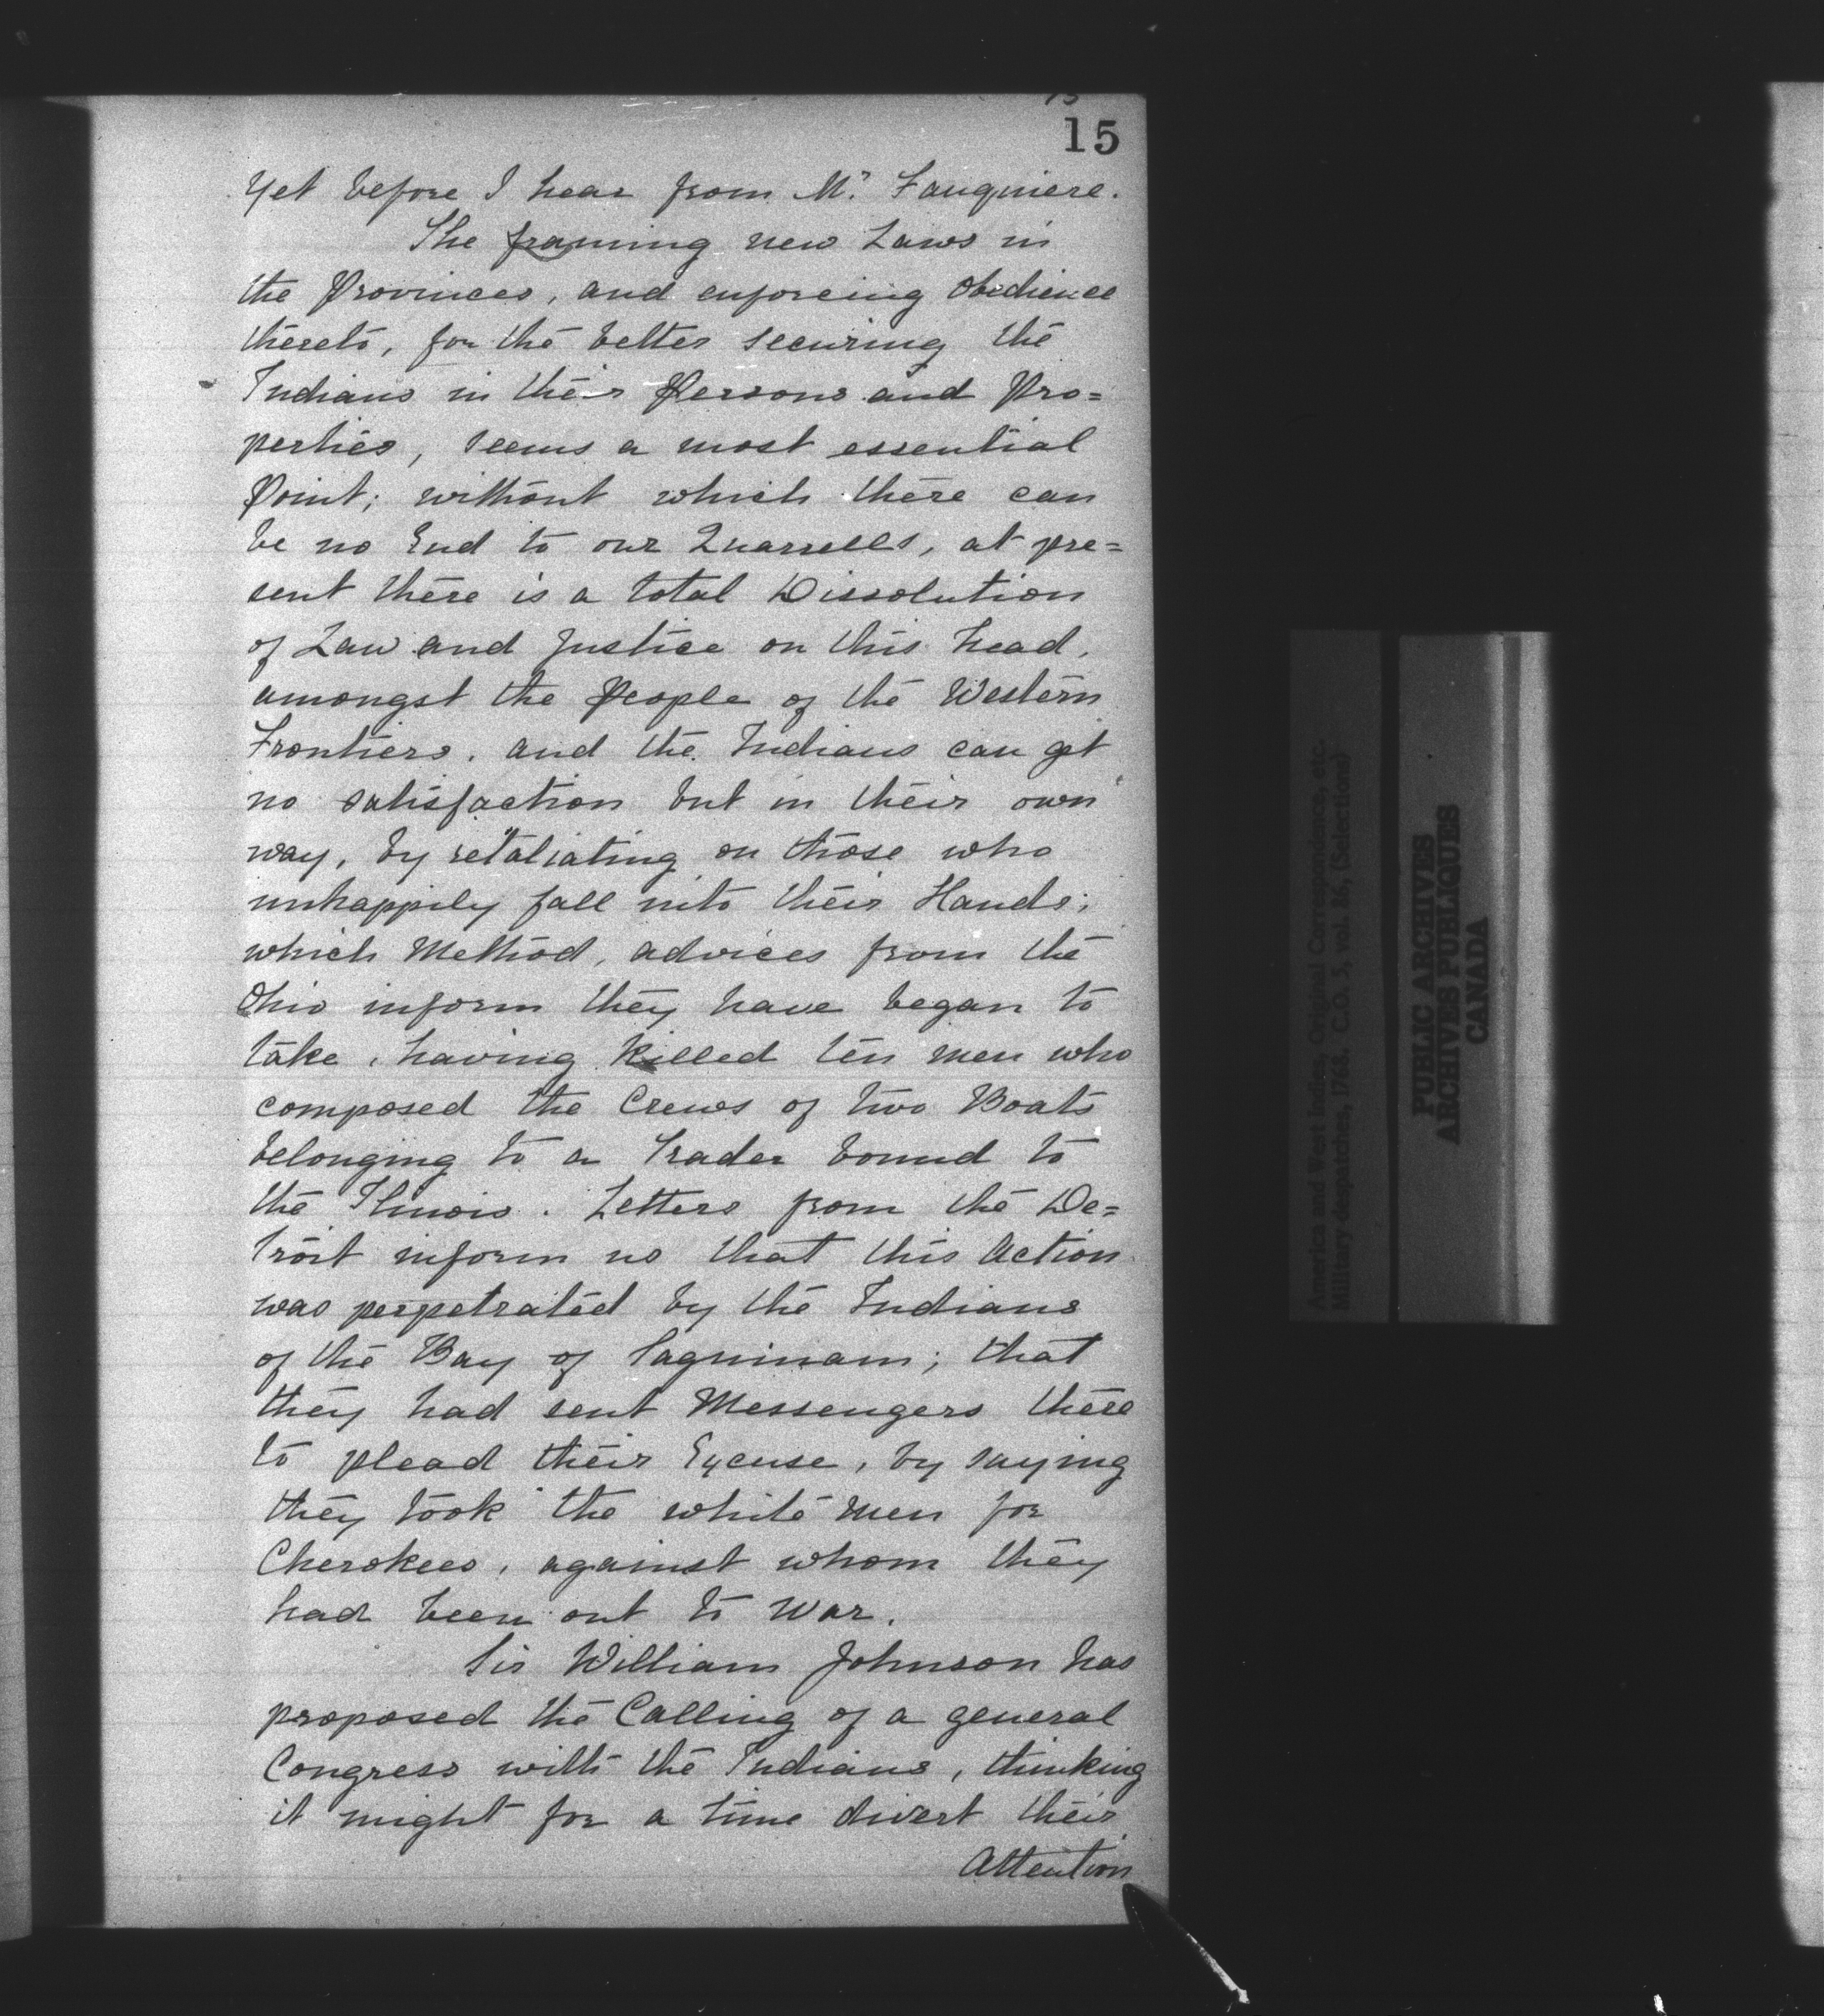 15
Yet before I hear from Mr. Fauquiere.
The framing new Laws in
the Provinces, and enforcing Obedience
thereto, for the better securing the
Indians in their Persons and Pro=
perties, seems a most essential
Point; without which there can
be no End to our Quarrells, at pre=
sent there is a total Dissolution
of Law and Justice on this head,
amongst the People of the Western
Frontiers, and the Indians can get
no satisfaction but in their own
way, by retaliating on those who
unhappily fall into their Hands;
which Method, advices from the
Ohio inform they have began to
take, having killed ten men who
composed the Crews of two Boats
belonging to a Trader bound to
the Ilinois. Letters from the De=
troit inform us that this Action
was perpetrated by the Indians
of the Bay of Saguinam; that
they had sent Messengers there
to plead their Excuse, by saying
they took the white men for
Cherokees, against whom they
had been out to War.
Sir William Johnson has
proposed the Calling of a general
Congress with the Indians, thinking
it might for a time divert their
Attention
America and West Indies, Original Correspondence, etc.
Military despatches, 1768. C.O. 5, vol. 86, (Selections)
PUBLIC ARCHIVES
ARCHIVES PUBLIQUES
CANADA